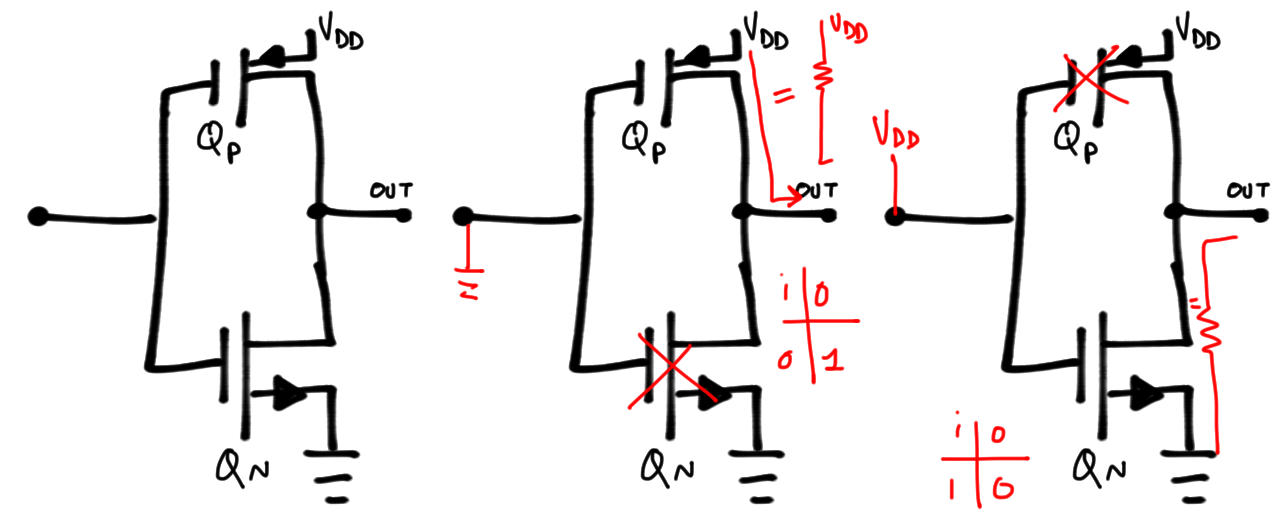 V_DD
Q_P
OUT
Q_N
V_DD
V_DD
=
Q_P
OUT
i | 0
0 | 1
Q_N
V_DD
V_DD
Q_P
OUT
=
i | 0
1 | 0
Q_N